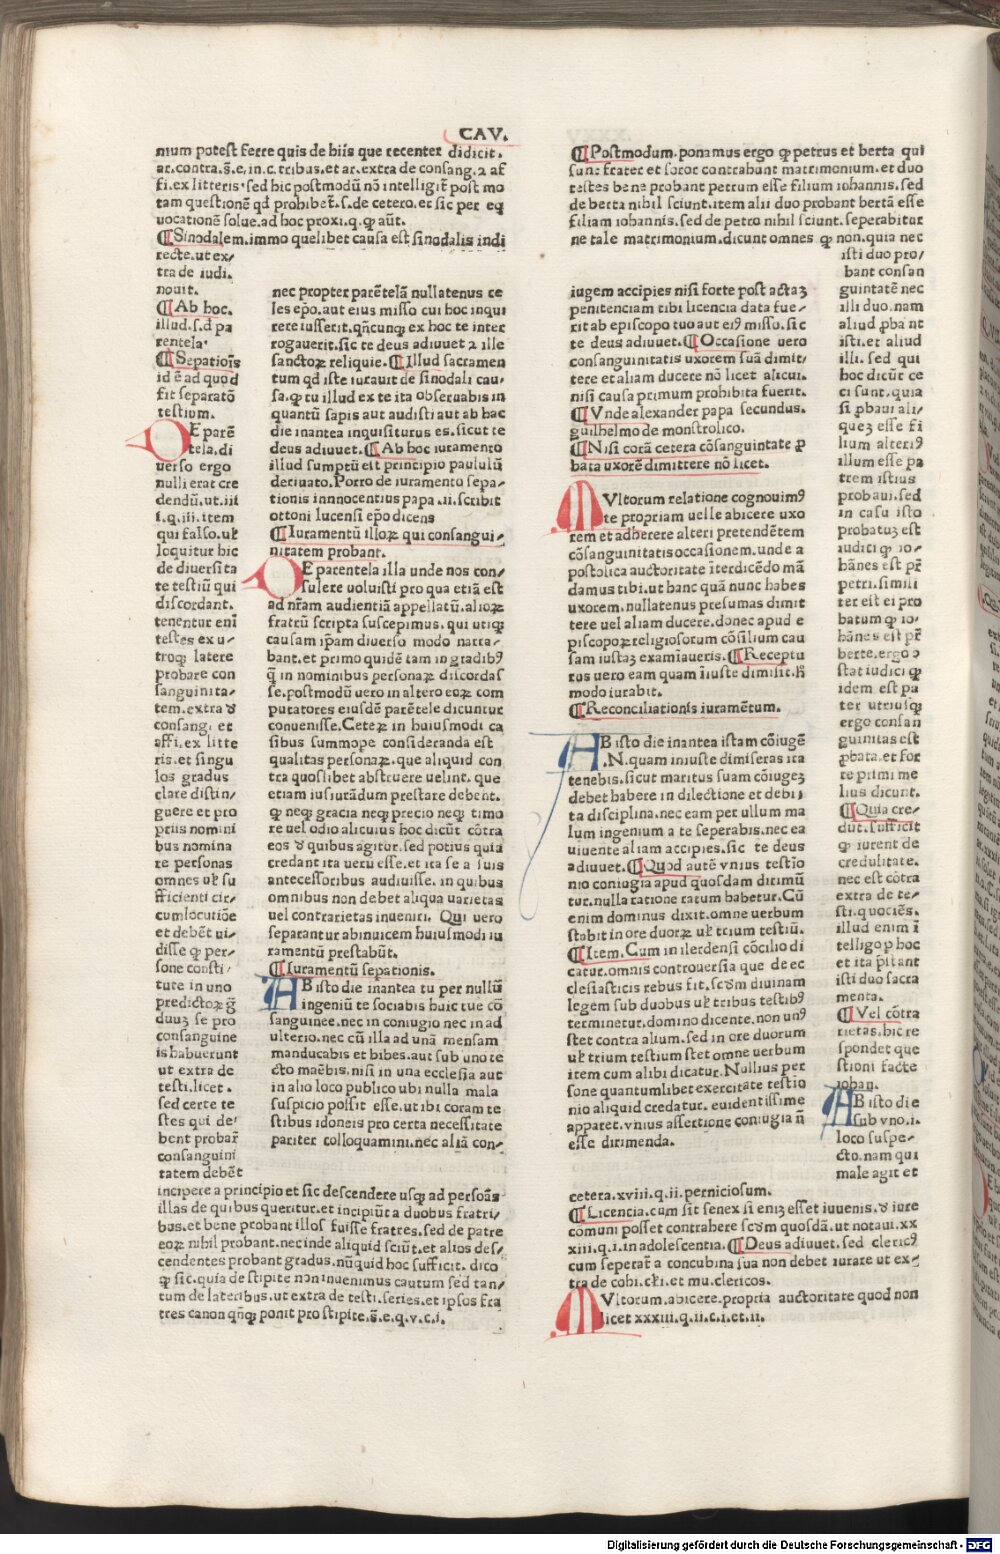 CAV.
nium potest ferre quis de hiis que recenter didicit.
ar. contra. s̄. e. in. c. tribus. et ar. extra de consang. ⁊ af
fi. ex litteris. sed hic postmodū nō intelligit̄ post mo
tam questionē qd prohibet̄. s. de cetero. et sic per eq
uocationē solue. ad hoc proxi. q. ꝙ aūt.
¶ Sinodalem. immo quelibet causa est sinodalis indi
recte. ut ex/
tra de iudi.
nouit.
¶ Ab hoc.
illud. s. d̄ pa
rentela.
¶ Sepatiōis
id ē ad quod
fit separatō
testium.
DE parē
tela. di
uerso ergo
nulli erat cre
dendū. ut. iii
i. q. iii. item
qui falso. uł
loquitur hic
de diuersita
te testiū qui
discordant.
tenentur enī
testes ex u/
troqꝫ latere
probare con
sanguinita/
tem. extra ꝺ
consangi et
affi. ex litte
ris. et singu
los gradus
clare distin/
guere et pro
priis nomini
bus nomina
re personas
omnes uł su
fficienti cir/
cumlocutiōe
et debēt ui/
disse ꝙ per/
sone consti/
tute in uno
predictoꝝ g̃
duuꝫ se pro
consanguine
is habuerunt
ut extra de
testi. licet.
sed certe te
stes qui de/
bent probar̄
consanguini
tatem debēt
nec propter parētelā nullatenus ce
les ep̄o. aut eius misso cui hoc inqui
rere iusserit. qn̄cunqꝫ ex hoc te inter
rogauerit. sic te deus adiuuet ⁊ ille
sanctoꝝ reliquie. ¶ Illud sacramen
tum qd̄ iste iurauit de sinodali cau/
sa. ꝙ tu illud ex te ita obseruabis in
quantū sapis aut audisti aut ab hac
die inantea inquisiturus es. sic ut te
deus adiuuet. ¶ Ab hoc iuramento
illud sumptū est principio paululū
deriuato. Porro de iuramento sepa/
tionis innnocentius papa. ii. scribit
ottoni lucensi ep̄o dicens
¶ Iuramentū illoꝝ qui consangui/
nitatem probant.
DE parentela illa unde nos con/
sulere uoluisti pro qua etiā est
ad nr̄am audientiā appellatū. alioꝝ
fratrū scripta suscepimus. qui utiqꝫ
causam ip̄am diuerso modo narra/
bant. et primo quidē tam in gradibꝰ
q̄ in nominibus personaꝝ discordas
se. postmodū uero in altero eoꝝ com
putatores eiusdē parētele dicuntur
conuenisse. Ceteꝝ in huiusmodi ca
sibus summope consideranda est
qualitas personaꝝ. que aliquid con
tra quoslibet abstruere uelint. que
etiam iusiurādum prestare debent.
ꝙ neqꝫ gracia neqꝫ precio neqꝫ timo
re uel odio alicuius hoc dicūt cōtra
eos ꝺ quibus agitur. sed potius quia
credant ita ueru esse. et ita se a suis
antecessoribus audiuisse. in quibus
omnibus non debet aliqua uarietas
uel contrarietas inueniri. Qui uero
separantur abinuicem huiusmodi iu
ramentū prestabūt.
¶ Iuramentū sepationis.
AB isto die inantea tu per nullū
ingeniū te sociabis huic tue cō
sanguinee. nec in coniugio nec in ad
ulterio. nec cū illa ad unā mensam
manducabis et bibes. aut sub uno te
cto maēbis. nisi in una ecclesia aut
in alio loco publico ubi nulla mala
suspicio possit esse. ut ibi coram te
stibus idoneis pro certa necessitate
pariter colloquamini. nec aliā con/
incipere a principio et sic descendere usqꝫ ad persoās
illas de quibus queritur. et incipiūt a duobus fratri/
bus. et bene probant illos fuisse fratres. sed de patre
eoꝝ nihil probant. nec inde aliquid sciūt. et alios des/
cendentes probant gradus. nūquid hoc sufficit. dico
ꝙ sic. quia de stipite non inuenimus cautum sed tan/
tum de lateribus. ut extra de testi. series. et ipsos fra
tres canon qn̄qꝫ ponit pro stipite. s̄. e. q. v. c. i.
¶ Postmodum. ponamus ergo ꝙ petrus et berta qui
sunt frater et soror contrahunt matrimonium. et duo
testes bene probant petrum esse filium iohannis. sed
de berta nihil sciunt. item alii duo probant bertā esse
filiam iohannis. sed de petro nihil sciunt. seperabitur
ne tale matrimonium. dicunt omnes ꝙ non. quia nec
iugem accipies nisi forte post actaꝫ
penitenciam tibi licencia data fue/
rit ab episcopo tuo aut eiꝰ misso. sic
te deus adiuuet. ¶ Occasione uero
consanguinitatis uxorem suā dimit/
tere et aliam ducere nō licet alicui.
nisi causa primum probibita fuerit.
¶ Vnde alexander papa secundus.
guilhelmo de monstrolico.
¶ Nisi corā cetera cōsanguintate ꝓ
bata uxorē dimittere nō licet.
MVltorum relatione cognouimꝰ
te propriam uelle abicere uxo
rem et adherere alteri pretendētem
cōsanguinitatis occasionem. unde a
postolica auctoritate īterdicēdo mā
damus tibi. ut hanc quā nunc habes
uxorem. nullatenus presumas dimit
tere uel aliam ducere. donec apud e
piscopoꝝ religiosorum cōsilium cau
sam iustaꝫ examīaueris. ¶ Receptu
rus uero eam quam īiuste dimisit. h̄
modo iurabit.
¶ Reconciliationis iuramētum.
AB isto die inantea istam cōiugē
. N. quam iniuste dimiseras ita
tenebis. sicut maritus suam cōiugeꝫ
debet habere in dilectione et debi
ta disciplina. nec eam per ullum ma
lum ingenium a te seperabis. nec ea
uiuente aliam accipies. sic te deus
adiuuet. ¶ Quod autē vnius testīo
nio coniugia apud quosdam dirimū
tur. nulla ratione ratum habetur. Cū
enim dominus dixit. omne uerbum
stabit in ore duoꝝ uł trium testiū.
¶ Item. Cum in ilerdensi cōcilio di
catur. omnis controuersia que de ec
clesiasticis rebus fit. scꝺm diuinam
legem sub duobus uł tribus testibꝰ
terminetur. domino dicente. non unꝰ
stet contra alium. sed in ore duorum
uł trium testium stet omne uerbum
item cum alibi dicatur. Nullius per
sone quantumlibet exercitate testio
nio aliquid credatur. euidentissime
apparet. vnius assertione coniugia n̄
esse dirimenda.
isti duo pro/
bant consan
guintatē nec
illi duo. nam
aliud ꝓbant
isti. et aliud
illi. sed qui
hoc dicūt ce
ci sunt. quia
si ꝓbaui ali/
queꝫ esse fi
lium alteriꝰ
illum esse pa
trem istius
probaui. sed
in casu isto
probatuꝫ est
iudici ꝙ io/
hānes est pr̄
petri. simili
ter est ei pro
batum ꝙ io/
hānes est pr̄
berte. ergo ꝯ
stat iudici ꝙ
idem est pa
ter utriusqꝫ
ergo consan
guinitas est
ꝓbata. et for
te primi me
lius dicunt.
¶ Quia cre/
dūt. sufficit
ꝙ iurent de
credulitate.
nec est cōtra
extra de te/
sti. quociēs.
illud enim ī
telligo ꝓ hoc
et ita p̄itant
isti duo sacra
menta.
¶ Vel cōtra
rietas. hic re
spondet que
stioni facte
ioban.
AB isto die
sub vno. i.
loco suspe/
cto. nam qui
male agit et
cetera. xviii. q. ii. perniciosum.
¶ Licencia. cum sit senex si enīꝫ esset iuuenis. ꝺ iure
comuni posset contrahere scꝺm quosdā. ut notaui. xx
xiii. q. i. in adolescentia. ¶ Deus adiuuet. sed clericꝰ
cum seperat̄ a concubina sua non debet iurare ut ex/
tra de cohi. cłi. et mu. clericos.
MVltorum. abicere. propria auctoritate quod non
licet xxxiii. q. ii. c. i. et. ii.
Digitalisierung gefördert durch die Deutsche Forschungsgemeinschaft - DFG